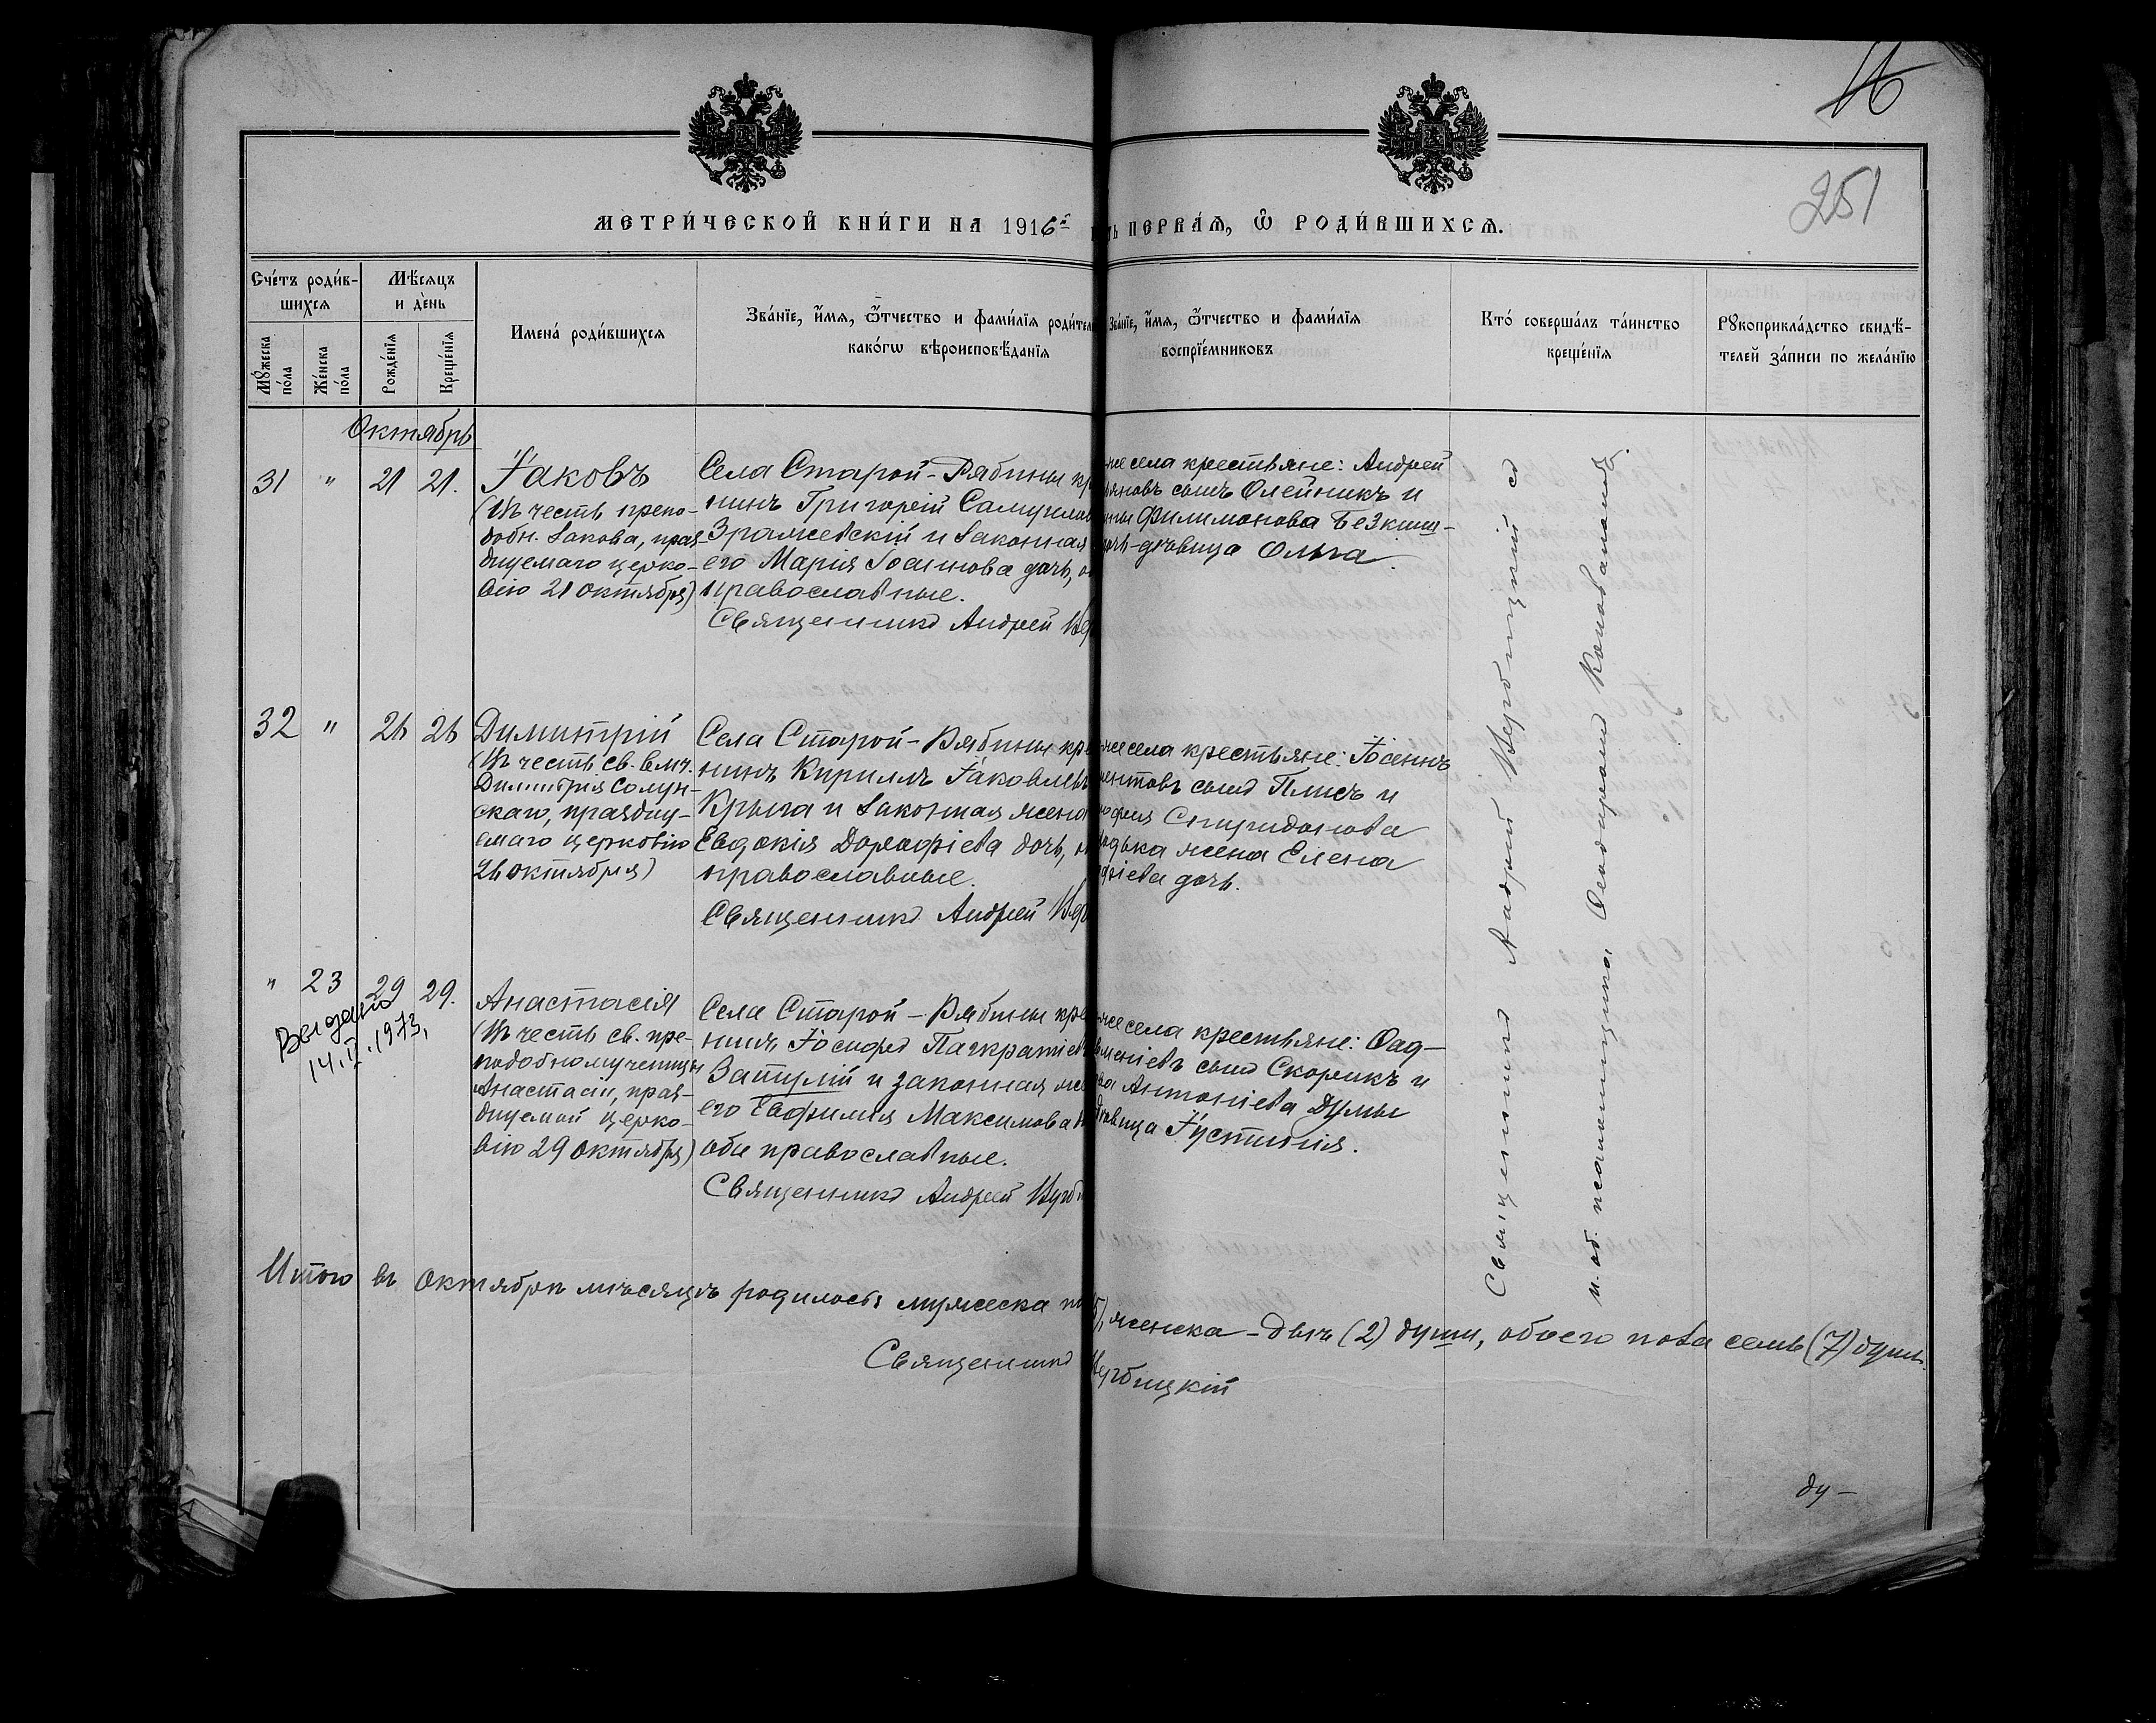 16
251
МЕТРИ́ЧЕСКОЙ КНИ́ГИ НА 1916й
ть ПЕРВА́Я, Ѿ РОДИ́ВШИХСЯ.
Сче́тъ роди́в-
шихся
Мѣ́сяцъ
и де́нь
Му́жеска по́ла
Же́нска по́ла
Рожде́нія
Креще́нія
Имена́ роди́вшихся
Зва́нїе, и́мя, ѻ҆́тчество и фами́лїя родител
како́гѡ вѣроисповѣ́данїя
Зва́нїе, и́мя, ѻ҆́тчество и фами́лїя
воспрїе́мниковъ
Кто́ соверша́лъ та́инство
креще́нїя
Рꙋкоприкла́дство свидѣ́-
телей за́писи по жела́нїю
Октябрь
31 " 21 21.
Іаковъ
(въ честь препо-
добн. Іакова, праз-
днуемаго церко-
вію 21 октября)
Села Старой-Рябины кр
нинъ Григорій Самуилов
Зражевскій и законная
его Марія Іоаннова дочь, о
православные.
Священникъ Андрей Вер
же села крестьяне: Андрей
ьяновъ сынъ Олейникъ и
Филимонова Безкиш-
дочь-дѣвица Ольга.
32 " 26 26
Димитрій
(въ честь св. влмч.
Димитрія Солун-
скаго, праздну-
емаго церковію
26 октября)
Села Старой-Рябины кре
нинъ Кириллъ Іаковлев
Крыга и законная жена
Евдокія Дорофіева дочь, о
православные.
Священникъ Андрей Вер
же села крестьяне:
ентовъ сынъ Плисъ и
Спиридонова
дька жена Елена
фіева дочь.
" 23 29 29.
Выдано
14.II.1973,
Анастасія
(въ честь св. пре-
подобномученицы
Анастасіи, праз-
днуемой церко-
вію 29 октября)
Села Старой-Рябины кре
нинъ Іосифъ Панкратіев
Затулій и законная же
его Евфимія Максимова
оба православные.
Священникъ Андрей Верб
же села крестьяне: Фад-
меніевъ сынъ Скорикъ и
Антоніева Думы
дѣвица Іустинія.
Священникъ Андрей Вербицкій съ
и. об. псаломщика Феодоромъ
Итого въ октябрѣ мѣсяцѣ родилось мужеска по
5), женска - двѣ (2) души, обоего пола семь (7) душъ.
Священникъ
Вербицкій
ду-